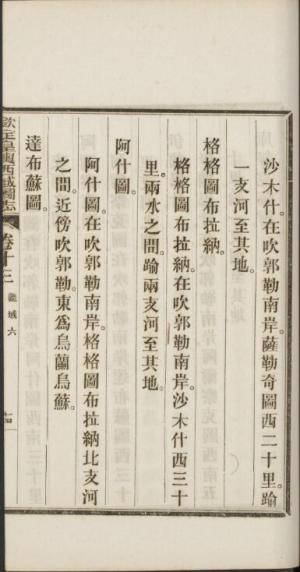 沙木什。在吹郭勒南岸。薩勒奇圖西二十里。踰
一支河至其地。
格格圖布拉納。
格格圖布拉納。在吹郭勒南岸。沙木什西三十
里。兩水之間。踰兩支河至其地。
阿什圖。
阿什圖。在吹郭勒南岸。格格圖布拉納北支河
之間。近傍吹郭勒。東為烏蘭烏蘇。
達布蘇圖。
欽定皇輿西域圖志
卷十三
疆域六
十四